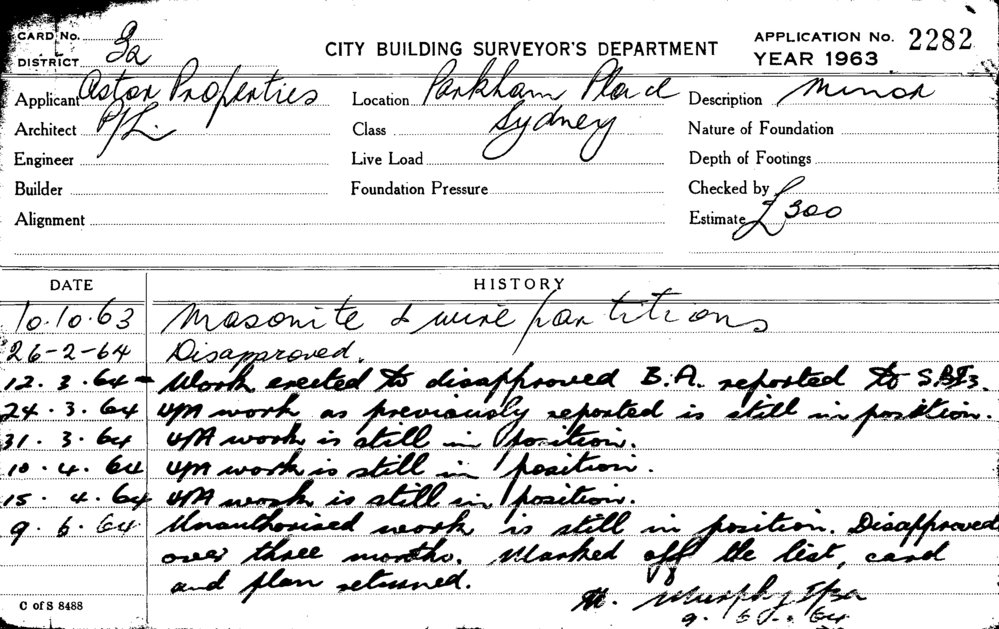 CARD No.
DISTRICT 3a
CITY BUILDING SURVEYOR'S DEPARTMENT
APPLICATION No. 2282
YEAR 1963
Applicant Aston Properties
Location Parkham Place
Description Minor
Architect P/L.
Class Sydney
Nature of Foundation
Engineer
Live Load
Depth of Footings
Builder
Foundation Pressure
Checked by
Alignment
Estimate £300
DATE HISTORY
10.10.63 Masonite & wire partitions
26-2-64 Disapproved.
12.3.64 - Work erected to disapproved B.A. reported to
24.3.64 U/A work as previously reported is still in position.
31.3.64 U/A work is still in position.
10.4.64 U/A work is still in position.
15.4.64 U/A work is still in position.
9.6.64 Unauthorised work is still in position. Disapproved
over three months. Marked off the list, card
and plan returned.
Murphy
9.6.64
C of S 8488